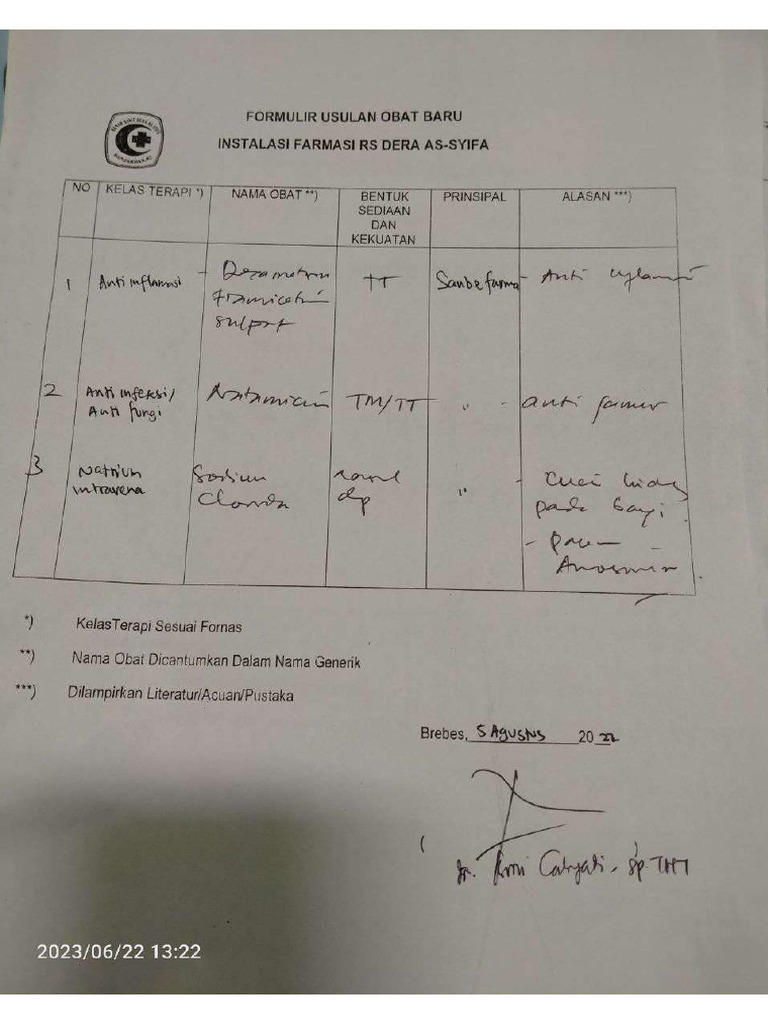 FORMULIR USULAN OBAT BARU
INSTALASI FARMASI RS DERA AS-SYIFA
NO KELAS TERAPI *) NAMA OBAT **) BENTUK SEDIAAN DAN KEKUATAN PRINSIPAL ALASAN ***)
1 Anti inflamsi - TT Sanbe farma - Anti
sulfat
2 Anti infeksi/ Anti fungi Natamicin TM/TT " - anti jamur
3 Natrium intravena Sodium " - cuci hidung
pada bayi
*) KelasTerapi Sesuai Fornas
**) Nama Obat Dicantumkan Dalam Nama Generik
***) Dilampirkan Literatur/Acuan/Pustaka
Brebes, 5 AGUSTUS 20 22
dr. Sp THT
2023/06/22 13:22